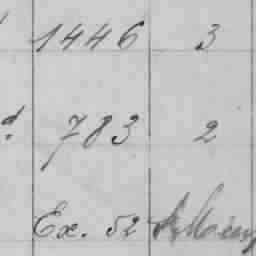 1446 3
d. 783 2
Ex. 52